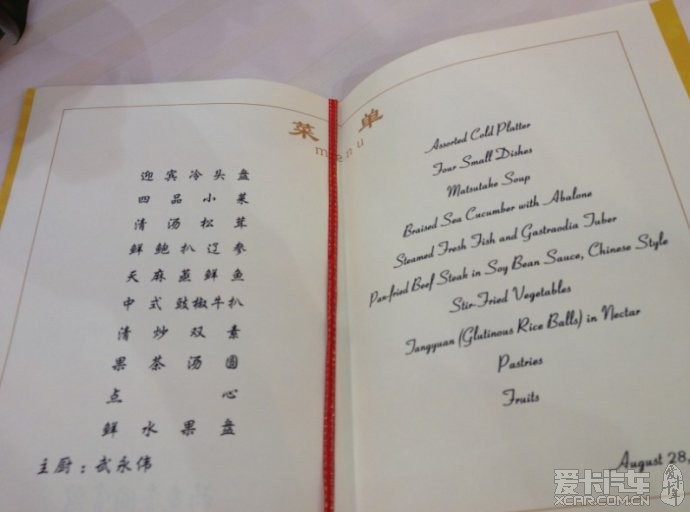 菜单
menu
迎宾冷头盘
四品小菜
清汤松茸
鲜鲍扒辽参
天麻蒸鲜鱼
中式豉椒牛扒
清炒双素
果茶汤圆
点心
鲜水果盘
主厨：武永伟
Assorted Cold Platter
Four Small Dishes
Matsutake Soup
Braised Sea Cucumber with Abalone
Steamed Fresh Fish and Gastraodia Tuber
Pan-fried Beef Steak in Soy Bean Sauce, Chinese Style
Stir-Fried Vegetables
Tangyuan (Glutinous Rice Balls) in Nectar
Pastries
Fruits
August 28,
爱卡汽车
XCAR.COM.CN